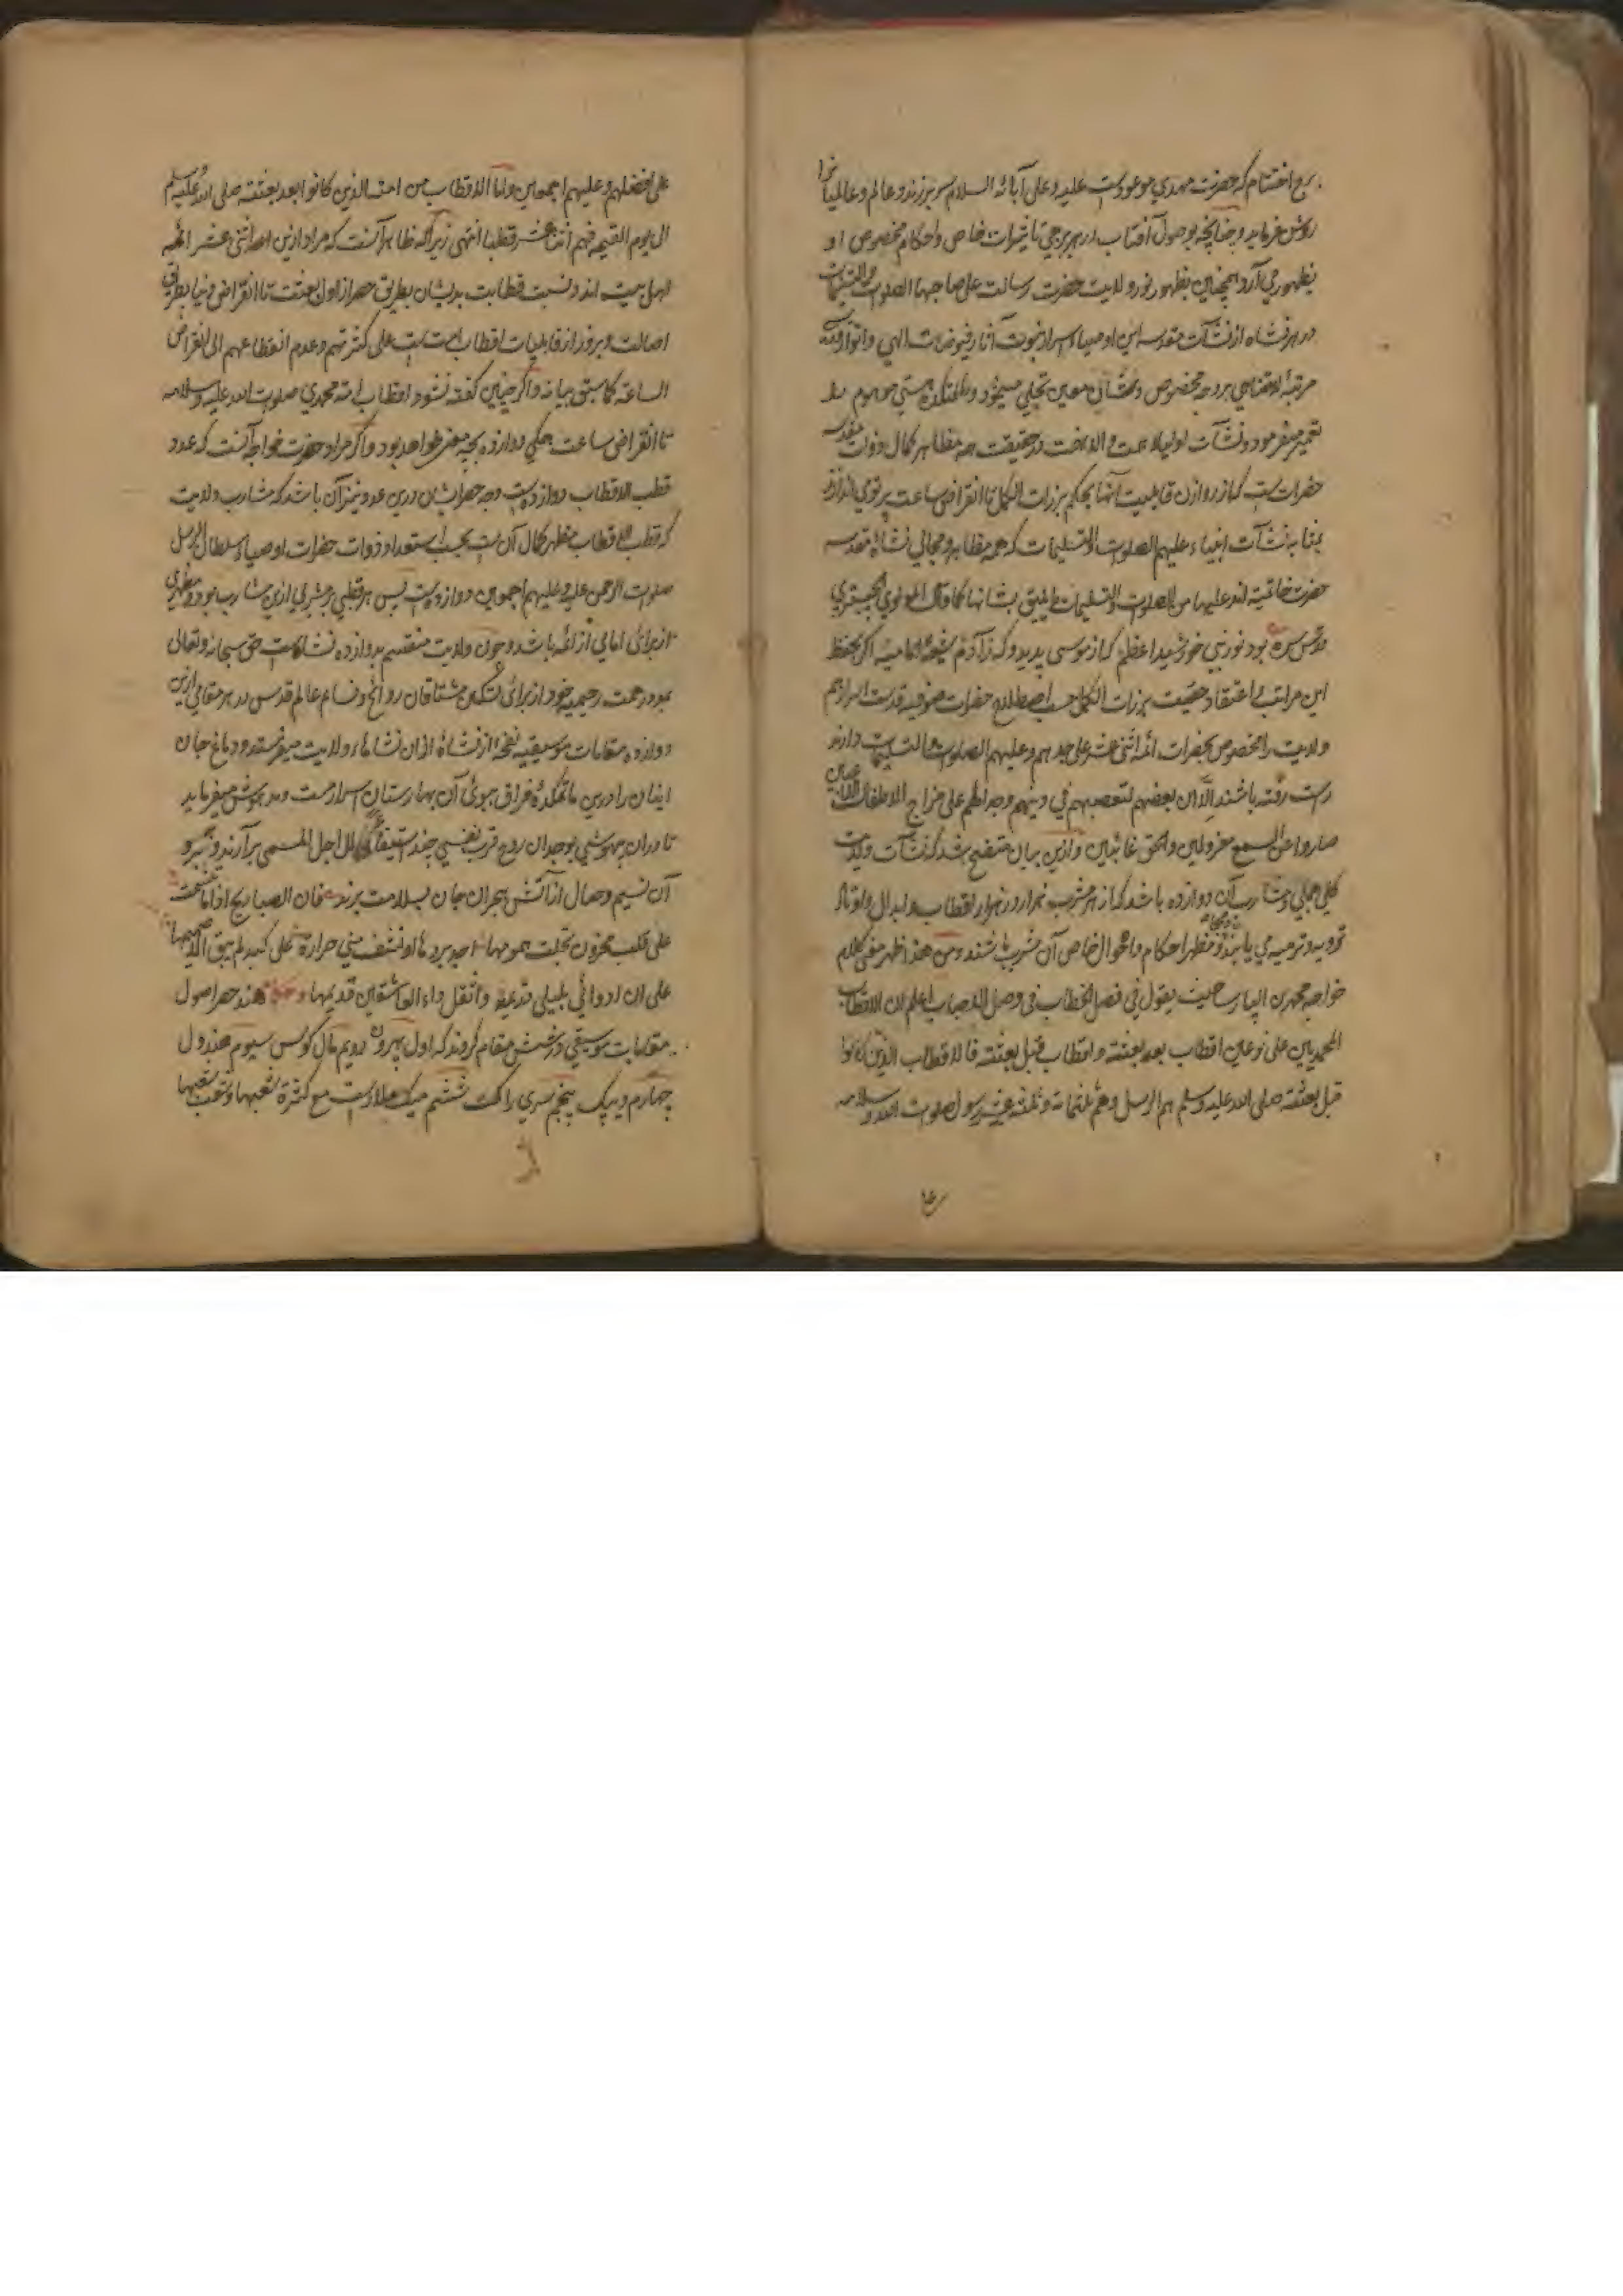 برج اختتام که حضرت مهدي موعودست عليه و على آبائه السلام سر برزند و عالم و عالميانرا
روشن فرمايد و چنانچه بوصول آفتاب در هر برجي تاثيرات خاص و احكام مخصوص او
بظهور مي آرد همچنين بظهور نور ولايت حضرت رسالت على صاحبها الصلوت والتسليمات
در هر نشاه از نشآت مقدسه اين اوصياء اسرار نبوت آثار فيوضات الهي و انوار
مرتبه بر وجه مخصوص و نشأتي معين تجلي مينمود و هستي موهوم
تعمير ميفرمود و نشآت اولياء در حقيقت همه مظاهر كمال ذوات مقدسه
حضرات ست كه از روازن قابليت آنها بحكم برزات الكمل تا انقراض ساعت پرتوي اندازد
بمثابه نشآت انبياء عليهم الصلوت والتسليمات كه همه مظاهر و مجالي نشاة مقدسه
حضرت خاتميه اند عليها من الصلوت والتسليمات ما يليق بشانها كما قال المولوي الجبستري
قدس سره بود نور نبي خورشيد اعظم كه از موسى پديد و گه ز آدم شيعهٔ اماميه اگر بحفظ
اين مراتب و اعتقاد حقيت برزات الكمل حسب اصطلاح حضرات صوفيه قدست اسرارهم
ولايت را مخصوص بحضرات ائمه اثنى عشر على جدهم و عليهم الصلوت والتسليمات دارند
راست رفته باشند الا ان بعضهم لتعصبهم في دينهم وجدلهم على مزاج الاطفال
صاروا عن السمع معزولين والحق غائبين و ازين بيان متضح شد كه نشآت ولايت
كلي جملي و مشارب آن دوازده باشد كه از هر مشرب هزار در هزار اقطاب و ابدال و اوتاد
تربيه و ترميه مي يابند و مظهر احكام و احوال خاص آن مشرب باشند و من هذا ظهر معنى كلام
خواجه محمد پارسا حيث يقول في فصل الخطاب في وصل الاحباب اعلم ان الاقطاب
المحمديين على نوعين اقطاب بعد بعثته و اقطاب قبل بعثته فالاقطاب الذين كانوا
قبل بعثته صلى الله عليه وسلم هم الرسل وهم ثلثمائة و ثلثة عشر رسول صلوت الله وسلامه
على افضلهم و عليهم اجمعين و اما الاقطاب من امته الذين كانوا بعد بعثته صلى الله عليه وسلم
الى يوم القيمه فهم اثنا عشر قطبا انتهى زيرا كه ظاهر آنست كه مراد ازين اثنى عشر ائمه
اهل بيت اند و نسبت قطابت بديشان بطريق حصر از اول بعثت تا انقراض دنيا بطريق
اصالت و بروز از قابليات اقطاب امت ست على كثرتهم و عدم انقطاعهم الى انقراض
الساعة كما سبق بيانه و اگر چنين گفته نشود اقطاب امة محمدي صلوت الله عليه وسلامه
تا انقراض ساعت همگي دوازده بچه معنى خواهد بود و اگر مراد حضرت خواجه آنست كه عدد
قطب الاقطاب دوازدهست وجه حصر ايشان درين عدد نيز آن باشد كه مشارب ولايت
كه قطب الاقطاب مظهر كمال آن ست بحسب استعداد ذوات حضرات اوصياء سلطان الرسل
صلوت الرحمن عليه و عليهم اجمعين دوازده است پس هر قطبي بر مشربي ازين مشارب بود و مظهري
از براى امامي از ائمه باشد و چون ولايت منقسم بدوازده نشاة است حق سبحانه و تعالى
بمود رحمت رحيميه خود از براى تسكين مشتاقان روائح و نسائم عالم قدس در هر مقامي ازين
دوازده مقامات موسيقيه نفخهٔ از نشاة از ان نشاهاء ولايت ميفرستد و دماغ جان
اينان را درين ماتمكدهٔ فراق ببوئى آن بهارستان اسرار مست و مدهوش ميفرمايد
تا در ان بيهوشي بوجدان روح قرب نفسي چند الى الاجل المسمى برآرند و
آن نسيم وصال از آتش هجران جان بسلامت برند فان الصبا ريح اذا ما تنسمت
على قلب محزون تجلت همومها اجد بردها او تشف مني حرارة على كبد لم يبق الا صميمها
على ان ادوائي بليلى قديمة و اقتل داء العاشقين قديمها و هند حصر اصول
مقامات موسيقي در شش مقام كردند كه اول بهرون دويم مال كوس سيوم هندول
چهارم ديپك پنجم سري راگ ششم ميگهه ملارست مع كثرة شعبها و تشعب شعبها